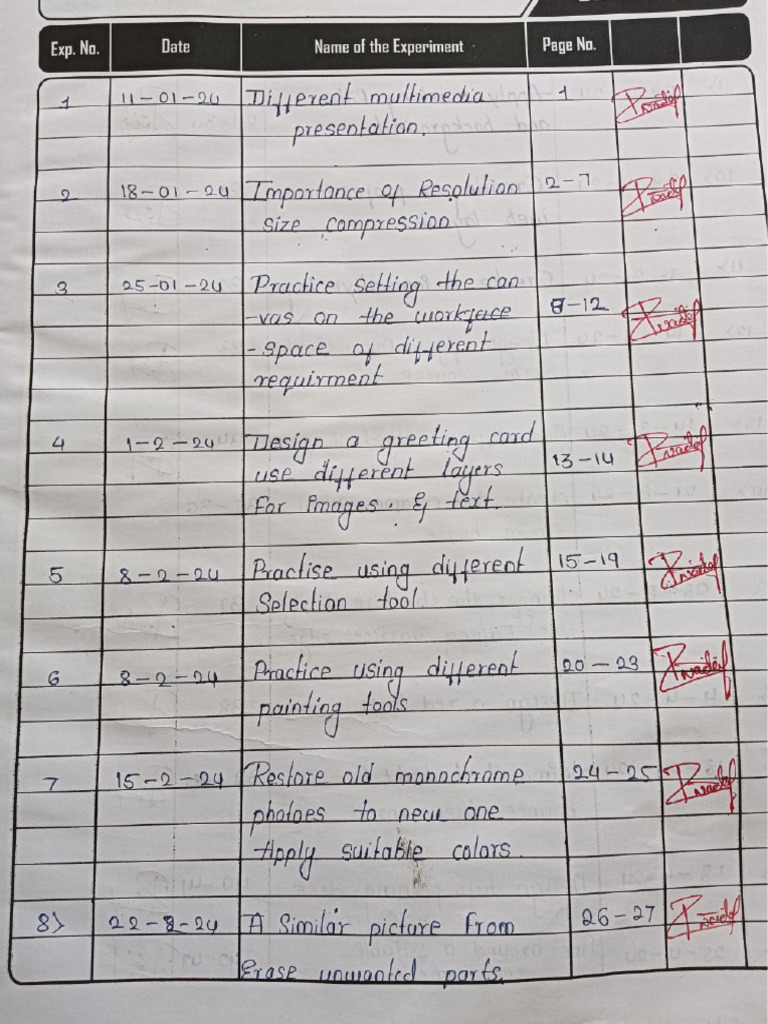 Exp. No. Date Name of the Experiment Page No.
1 11-01-24 Different multimedia 1
presentation.
2 18-01-24 Importance of Resolution 2-7
size compression
3 25-01-24 Practice setting the can
-vas on the workfece 8-12
-space of different
requirment
4 1-2-24 Design a greeting card
use different layers 13-14
for images. & text.
5 8-2-24 Practise using different 15-19
Selection tool.
6 8-2-24 Practice using different 20-23
painting tools
7 15-2-24 Restore old monochrome 24-25
photoes to new one
Apply suitable colors.
8) 22-2-24 A Similar picture from 26-27
Erase unwanted parts.